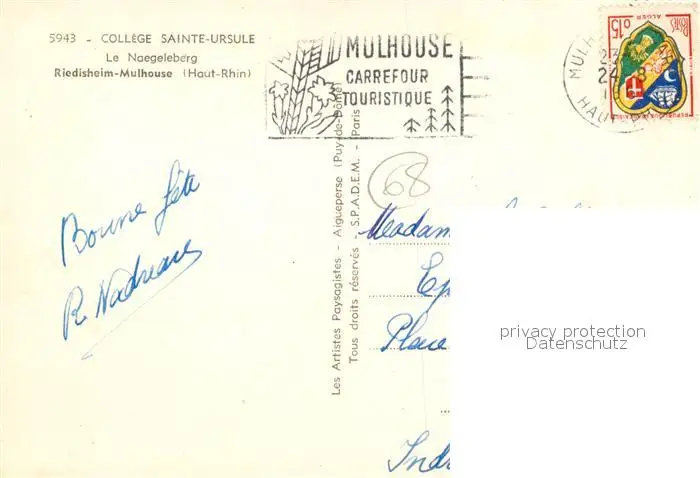 5943 - COLLÈGE SAINTE-URSULE
Le Naegeleberg
Riedisheim-Mulhouse (Haut-Rhin)
MULHOUSE
CARREFOUR
TOURISTIQUE
POSTES
0,15
ALGER
REPUBLIQUE FRANÇAISE
Bonne fête
R Nadreau
Les Artistes Paysagistes - Aigueperse (Puy-de-Dôme)
Tous droits réservés - S.P.A.D.E.M. - Paris
68
Madam
Ep
Place
Indr
privacy protection
Datenschutz